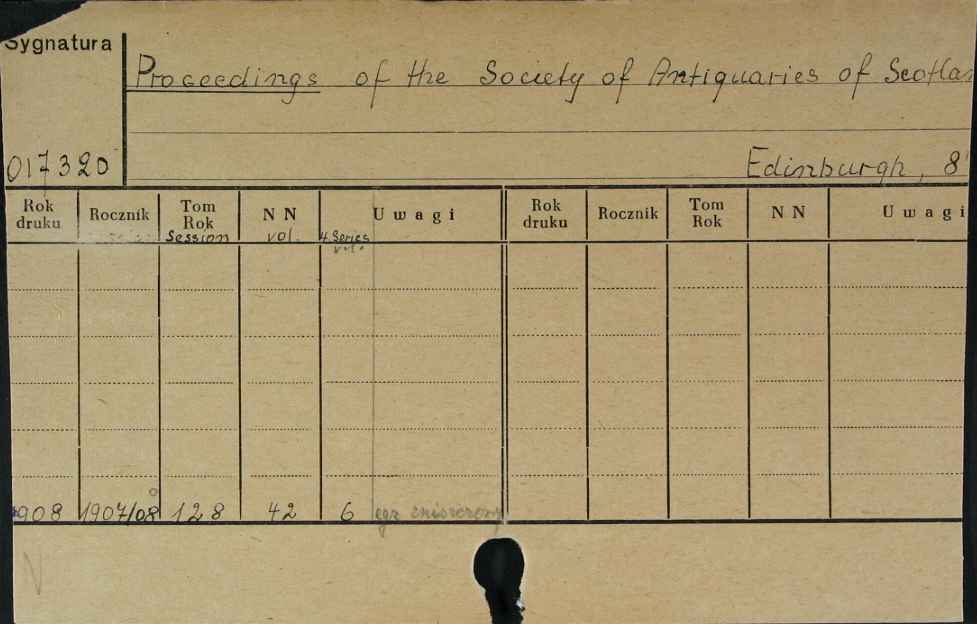 Sygnatura
Proceedings of the Society of Antiquaries of Scotlan
017320
Edinburgh, 8°
Rok druku Rocznik Tom Rok N N Uwagi Rok druku Rocznik Tom Rok N N Uwagi
Session vol. 4. Series
vol.
908 1907/08 128 42 6 egz zniszczony